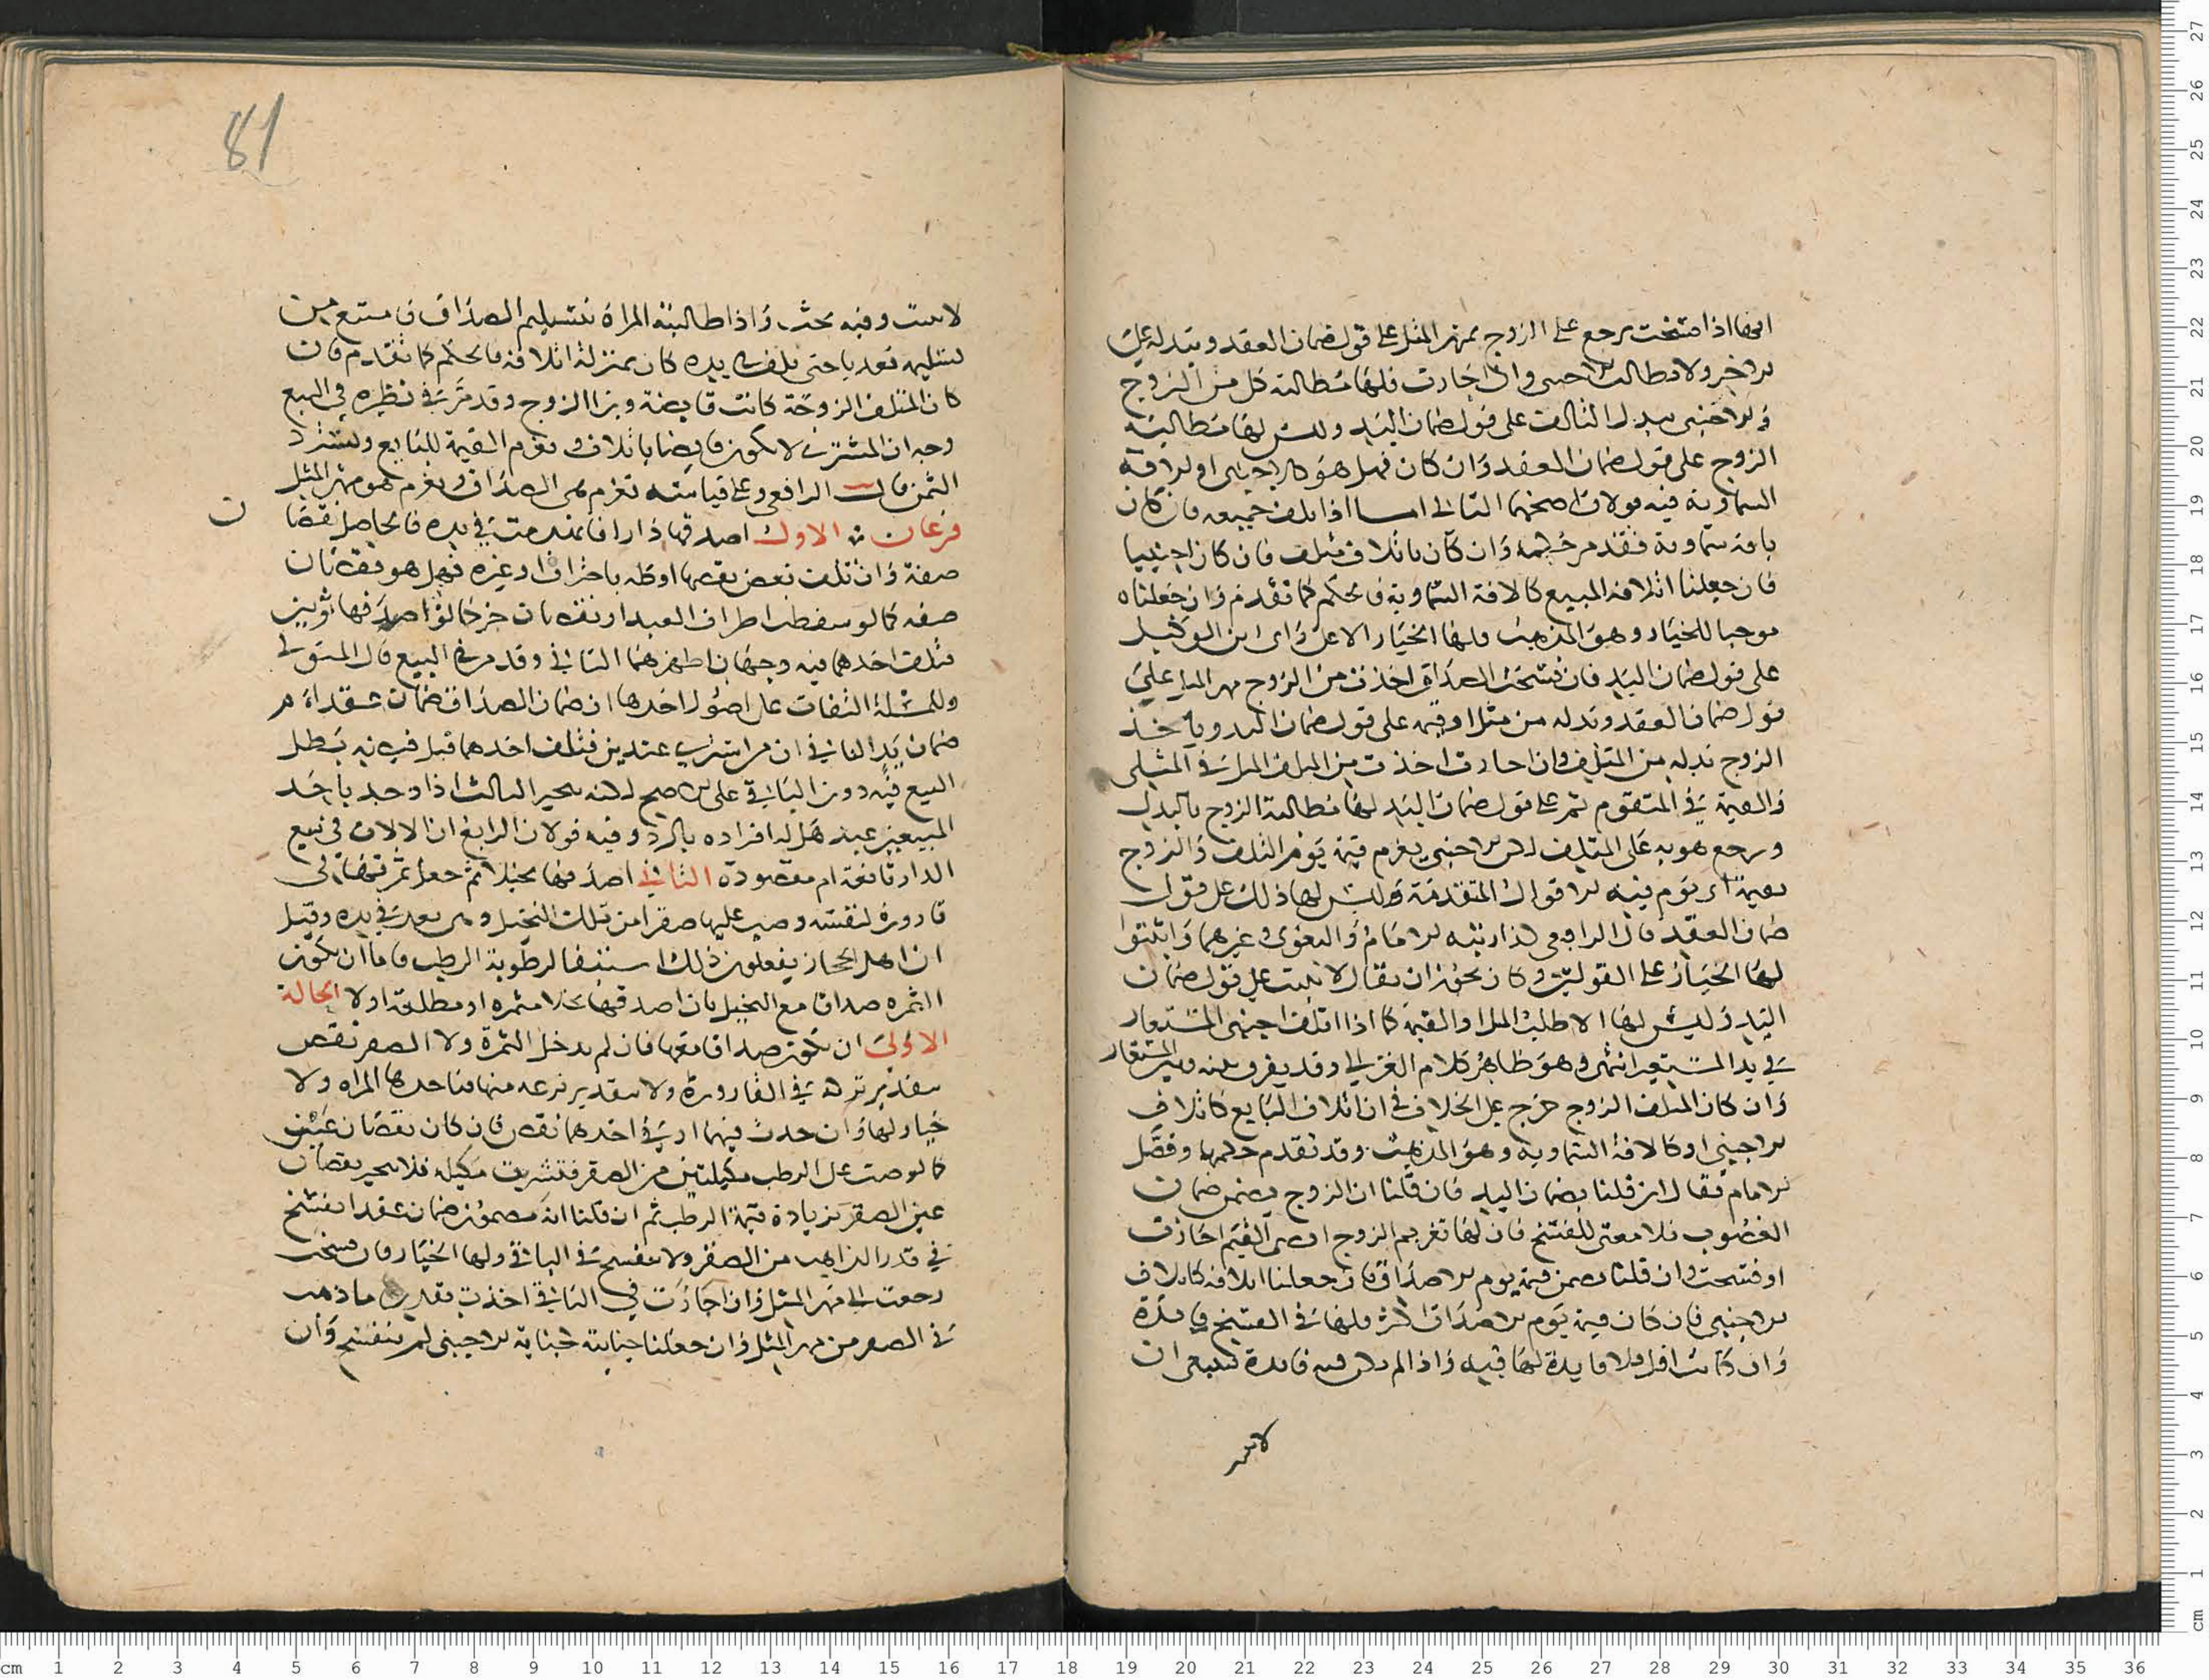 انها اذا فسخت رجع على الزوج بمهر المثل على قول ضمان العقد وببدله على
الاخر ولا مطالب الاجنبي وان اجازت فلها مطالبة كل من الزوج
والاجنبي ببدل التالف على قول ضمان اليد وليس لها مطالبة
الزوج على قول ضمان العقد وان كان فهل هو كالاجنبي او كالافة
السماوية فيه قولان اصحهما الثاني اما اذا تلف جميعه فان كان
بافة سماوية فقد مر حكمه وان كان باتلاف متلف فان كان اجنبيا
فان جعلنا اتلافه المبيع كالافة السماوية فالحكم كما تقدم وان جعلناه
موجبا للخيار وهو المذهب فلها الخيار الا على راى ابن الوكيل
على قول ضمان اليد فان فسخت الصداق اخذت من الزوج مهر المثل على
قول ضمان العقد وبدله من مثل او قيمة على قول ضمان اليد وياخذ
الزوج بدله من المتلف وان اجازت اخذت من المتلف المثل في المثلى
والقيمة في المتقوم ثم على قول ضمان اليد لها مطالبة الزوج بالبدل
ويرجع هو به على المتلف لكن الاجنبي يغرم قيمة يوم التلف والزوج
بقيمة اى يوم فيه الاقوال المتقدمة وليس لها ذلك على قول
ضمان العقد قال الرافعي لذا رتبه الامام والبغوى وغيرهما واثبتوا
لها الخيار على القولين وكان يجوز ان يقال لا يثبت على قول ضمان
اليد وليس لها الا طلب المثل او القيمة كما اذا اتلف اجنبي المستعار
في يد المستعير انتهى وهو ظاهر كلام الغزالي وقد يفرق بينه وبين المستعار
وان كان المتلف الزوج خرج على الخلاف في ان اتلاف البايع كاتلاف
الاجنبي او كالافة السماوية وهو المذهب وقد تقدم حكمهما وفصل
الامام فقال ان قلنا بضمان اليد فان قلنا ان الزوج يضمن ضمان
الغصوب فلا معنى للفسخ فان لها تغريم الزوج اقصى القيم اجازت
او فسخت وان قلنا يضمن قيمة يوم الاصداق فان جعلنا اتلافه كاتلاف
الاجنبي فان كان قيمة يوم الاصداق اكثر فلها في الفسخ فايدة
وان كانت اقل فلا فايدة لها فيه واذا لم يكن فيه فايدة فينبغي ان
لا يثبت
81
لا يثبت وفيه بحث واذا طالبته المراة بتسليم الصداق فامتنع من
تسليمه تعديا حتى تلف في يده كان بمنزلة اتلافه فالحكم كما تقدم فان
كان المتلف الزوجة كانت قابضة وبرا الزوج وقد مر في نظيره في البيع
وجه ان المشترى لا يكون قابضا باتلافه ويغرم القيمة للبايع ويسترد
الثمن قال الرافعي وعلى قياسه تغرم هي الصداق ويغرم هو مهر المثل
فرعان الاول اصدقها دارا فانهدمت في يده فالحاصل نقصان
صفة وان تلف بعض نقضها او كله باحتراق او غيره فهل هو نقصان
صفة كما لو سقطت اطراف العبد او نقصان جزء كما لو اصدقها ثوبين
فتلف احدهما فيه وجهان اظهرهما الثاني وقد مر في البيع قال المتولي
وللمسئلة التفات على اصول احدها ان ضمان الصداق ضمان عقد ام
ضمان يد الثاني ان من اشترى عبدين فتلف احدهما قبل قبضه يبطل
البيع فيه دون الباقي على الاصح لكنه يتخير الثالث اذا وجد باحد
المبيعين عيبه هل له افراده بالرد وفيه قولان الرابع ان الالات في بيع
الدار تابعة ام مقصودة الثاني اصدقها نخيلا ثم جعل ثمرتها في
قارورة لنفسه وصب عليها صقرا من تلك النخيل وهي بعد في يده وقيل
ان اهل الحجاز يفعلون ذلك استبقا لرطوبة الرطب فاما ان تكون
الثمرة صداقا مع النخيل بان اصدقها نخلا مثمرة او مطلعة او لا الحالة
الاولى ان تكون صداقا معها فان لم يدخل الثمرة ولا الصقر نقص
بتقدير تركه في القارورة ولا بتقدير نزعه منها فتاخدها المراه ولا
خيار لها وان حدث فيهما او في احدهما نقص فان كان نقصان عين
كما لو صب على الرطب مكيلتين من الصقر فتشربت مكيله فلا يتخير نقصان
عين الصقر بزيادة قيمة الرطب ثم ان قلنا انه مضمون ضمان عقد انفسخ
في قدر الذاهب من الصقر ولا ينفسخ في الباقي ولها الخيار فان فسخت
رجعت الى مهر المثل وان اجازت في الباقي اخذت بقدر ما ذهب
في الصقر من مهر المثل وان جعلنا جنايته كجناية الاجنبي لم ينفسخ وان